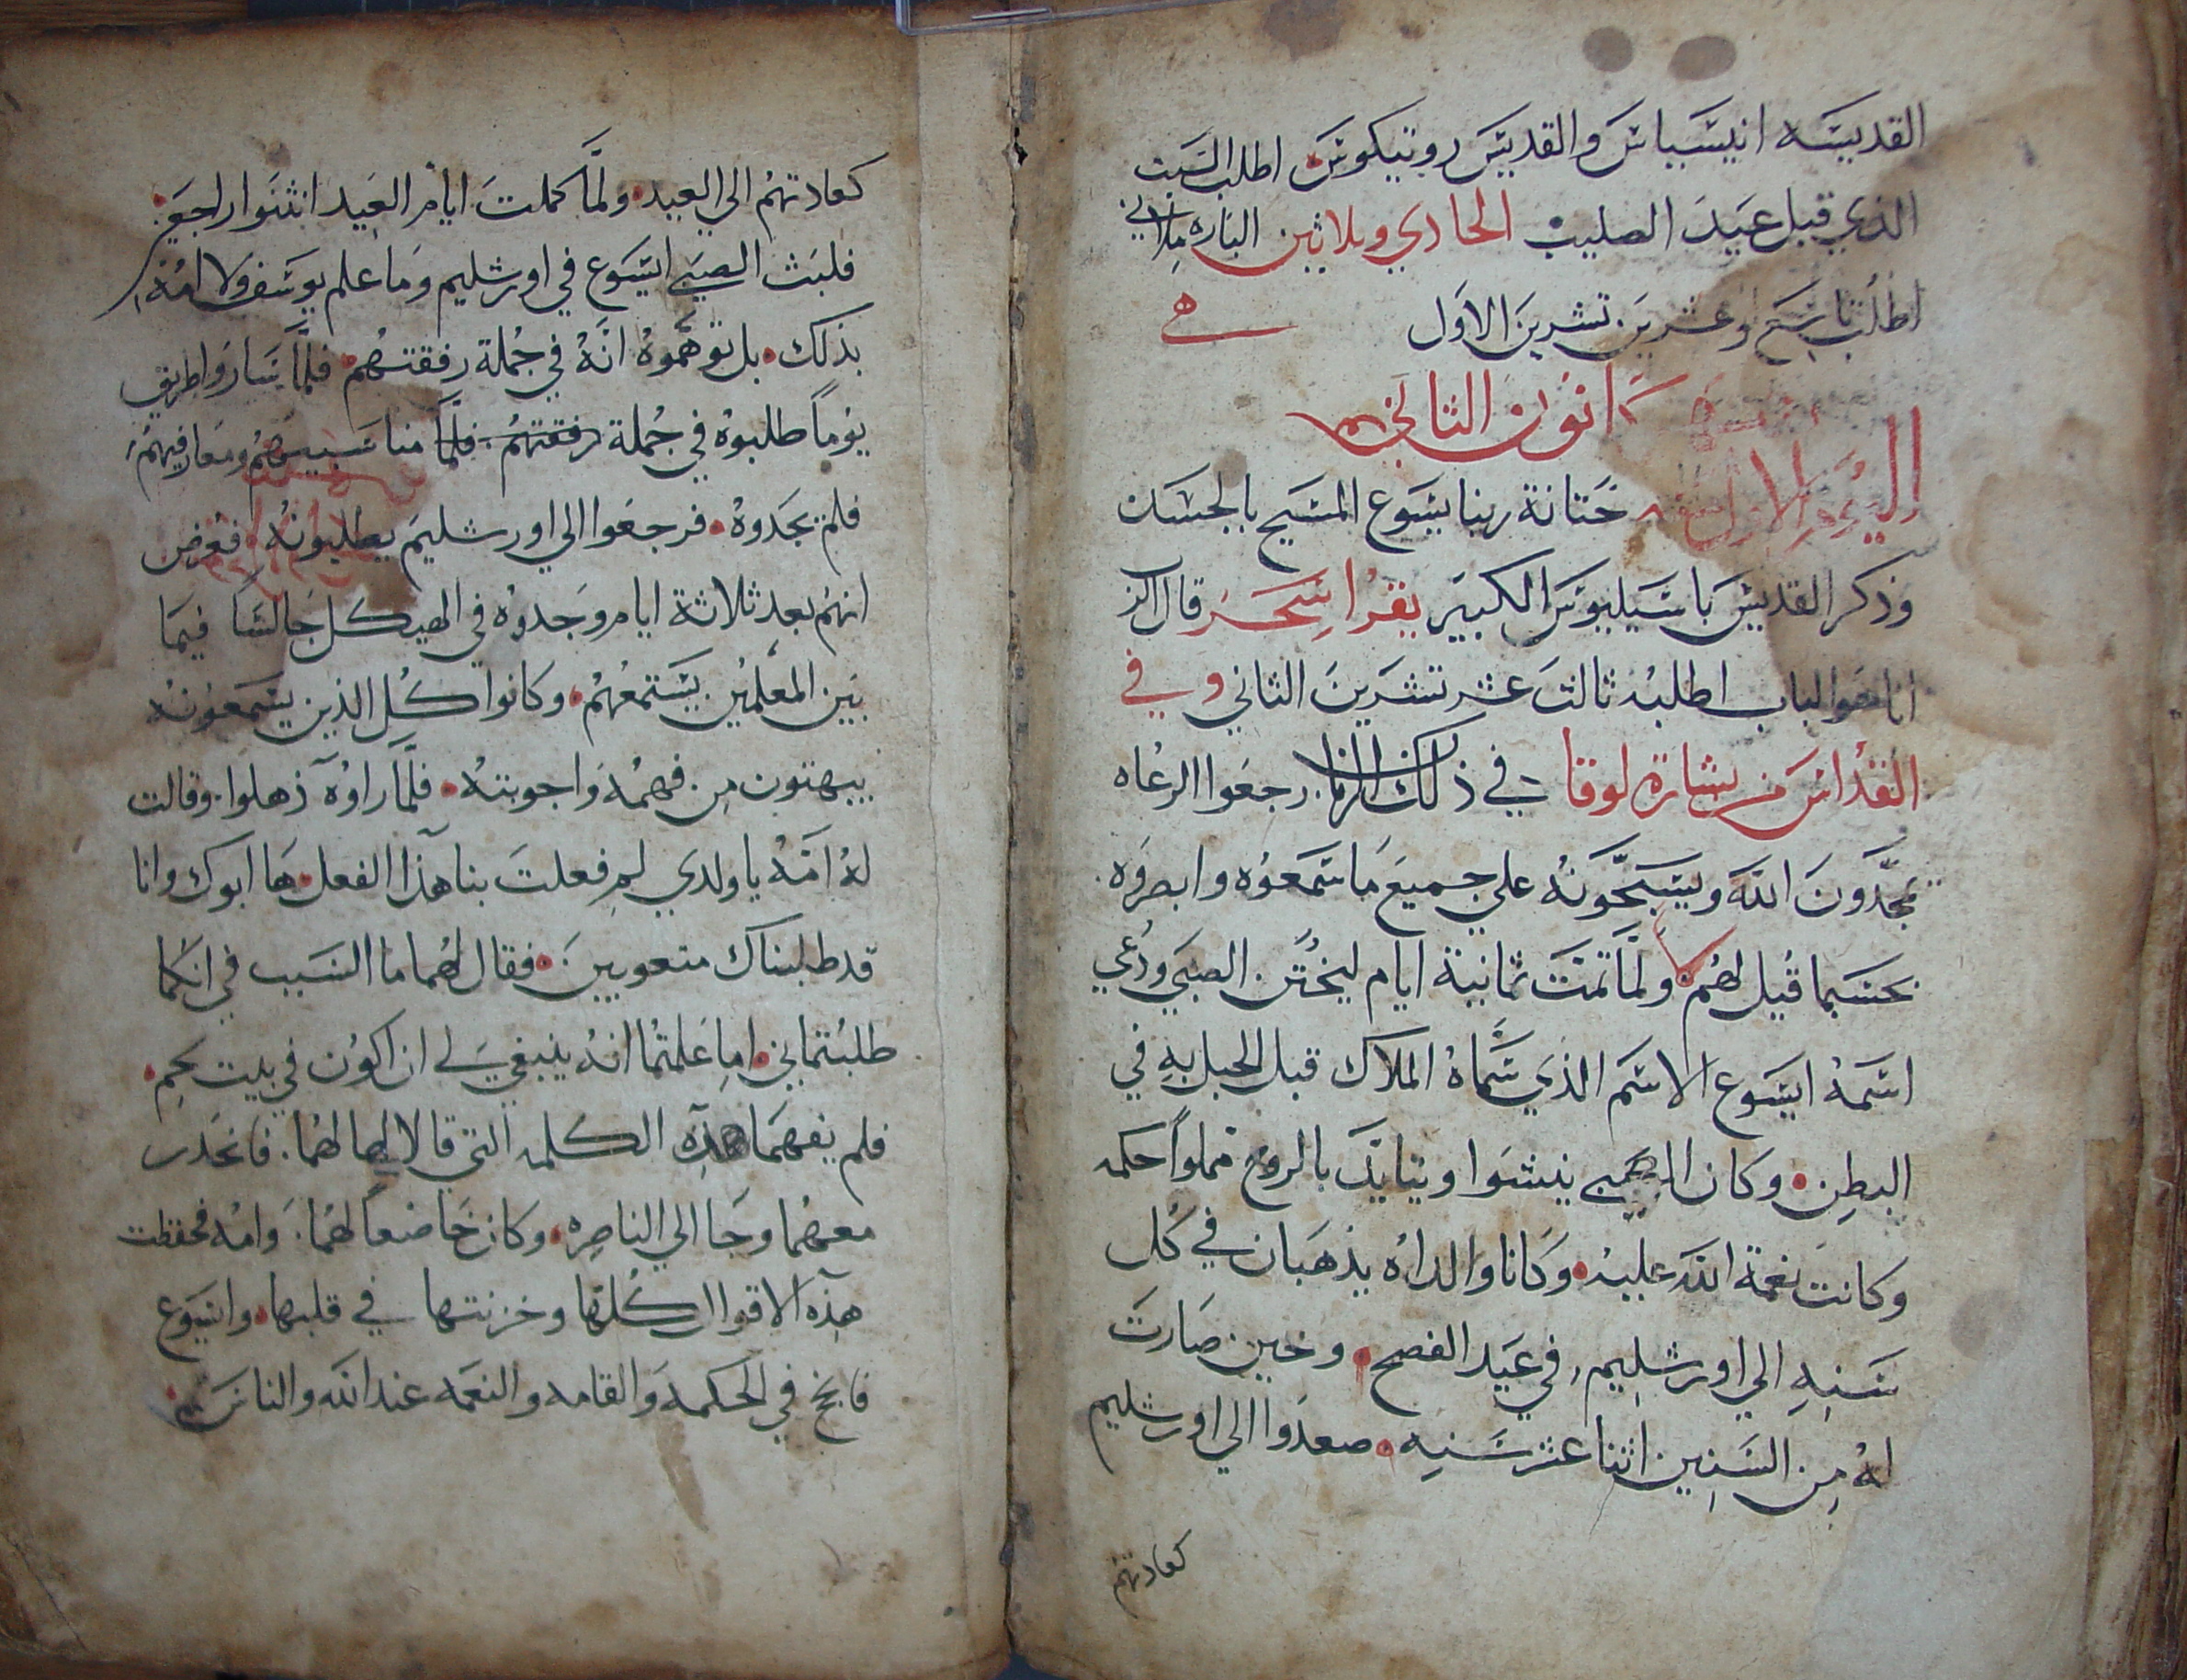 القديسه انيسياس والقديس روتيكوس اطلب السبت
الذي قبل عيد الصليب الحادي وىلاثين الباره
اطلب تاسع وعشرين تشرين الاول
كانون الثاني
اليوم الاول ختانة ربنا يسوع المسيح بالجسد
وذكر القديس باسيليوس الكبير يقرا سحر قال الرب
انا هو الباب اطلبه ثالث عشر تشرين الثاني وفي
القداس من بشارة لوقا في ذلك الزمان رجعوا الرعاه
يمجدون الله ويسبحونه علي جميع ما سمعوه وابصروه
بحسبما قيل لهم ولما تمت ثمانية ايام ليختن الصبي ودعي
اسمه ايسوع الاسم الذي سماه الملاك قبل الحبل به في
البطن وكان الصبي ينشوا ويتايد بالروح مملوا حكمه
وكانت نعمة الله عليه وكانا والداه يذهبان في كل
سنه الي اورشليم في عيد الفصح وحين صارت
له من السنين اثنا عشر سنه صعدوا الي اورشليم
كعادتهم
كعادتهم الي العيد ولما كملت ايام العيد انثنوا راجعين
فلبث الصبي ايسوع في اورشليم وما علم يوسف ولا امه
بذلك بل توهموه انه في جملة رفقتهم فلما ساروا طريق
يوما طلبوه في جملة رفقتهم فلما مناسبيهم ومعارفيهم
فلم يجدوه فرجعوا الي اورشليم يطلبونه فعرض
انهم بعد ثلاثة ايام وجدوه في الهيكل جالسا فيما
بين المعلمين يستمعهم وكانوا كل الذين يسمعونه
يبهتون من فهمه واجوبته فلما راوه ذهلوا وقالت
له امه يا ولدي لم فعلت بنا هذا الفعل ها ابوك وانا
قد طلبناك متعوبين فقال لهما ما السبب في انكما
طلبتماني اما علمتما انه ينبغي لي ان اكون في بيت
فلم يفهما هذه الكلمه التي قالا لهما فانحدر
معهما وجا الي الناصره وكان خاضعا لهما وامه فحفظت
هذه الاقوال كلها وخزنتها في قلبها وايسوع
فايخ في الحكمه والقامه والنعمه عند الله والناس